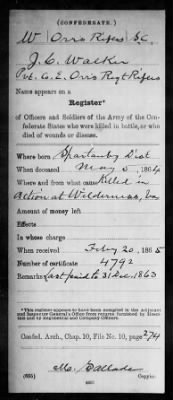 (CONFEDERATE.)
W Orrs Rifles S.C.
J. C. Walker
Pvt. Co. E. Orrs Regt Rifles
Name appears on a
Register*
of Officers and Soldiers of the Army of the Confederate
States who were killed in battle, or who
died of wounds or disease.
Where born Spartanbg Dist
When deceased May 5, 1864
Where and from what cause Killed in
Action at Wilderness, Va
Amount of money left
Effects
In whose charge
When received Feby 20, 1865
Number of certificate 4792
Remarks: Last paid to 31 Dec. 1863
*This register appears to have been compiled in the Adjutant
and Inspector General's Office from returns furnished by
and by Regimental and Company Officers.
Confed. Arch., Chap. 10, File No. 10, page 274
(635)
Copyist.